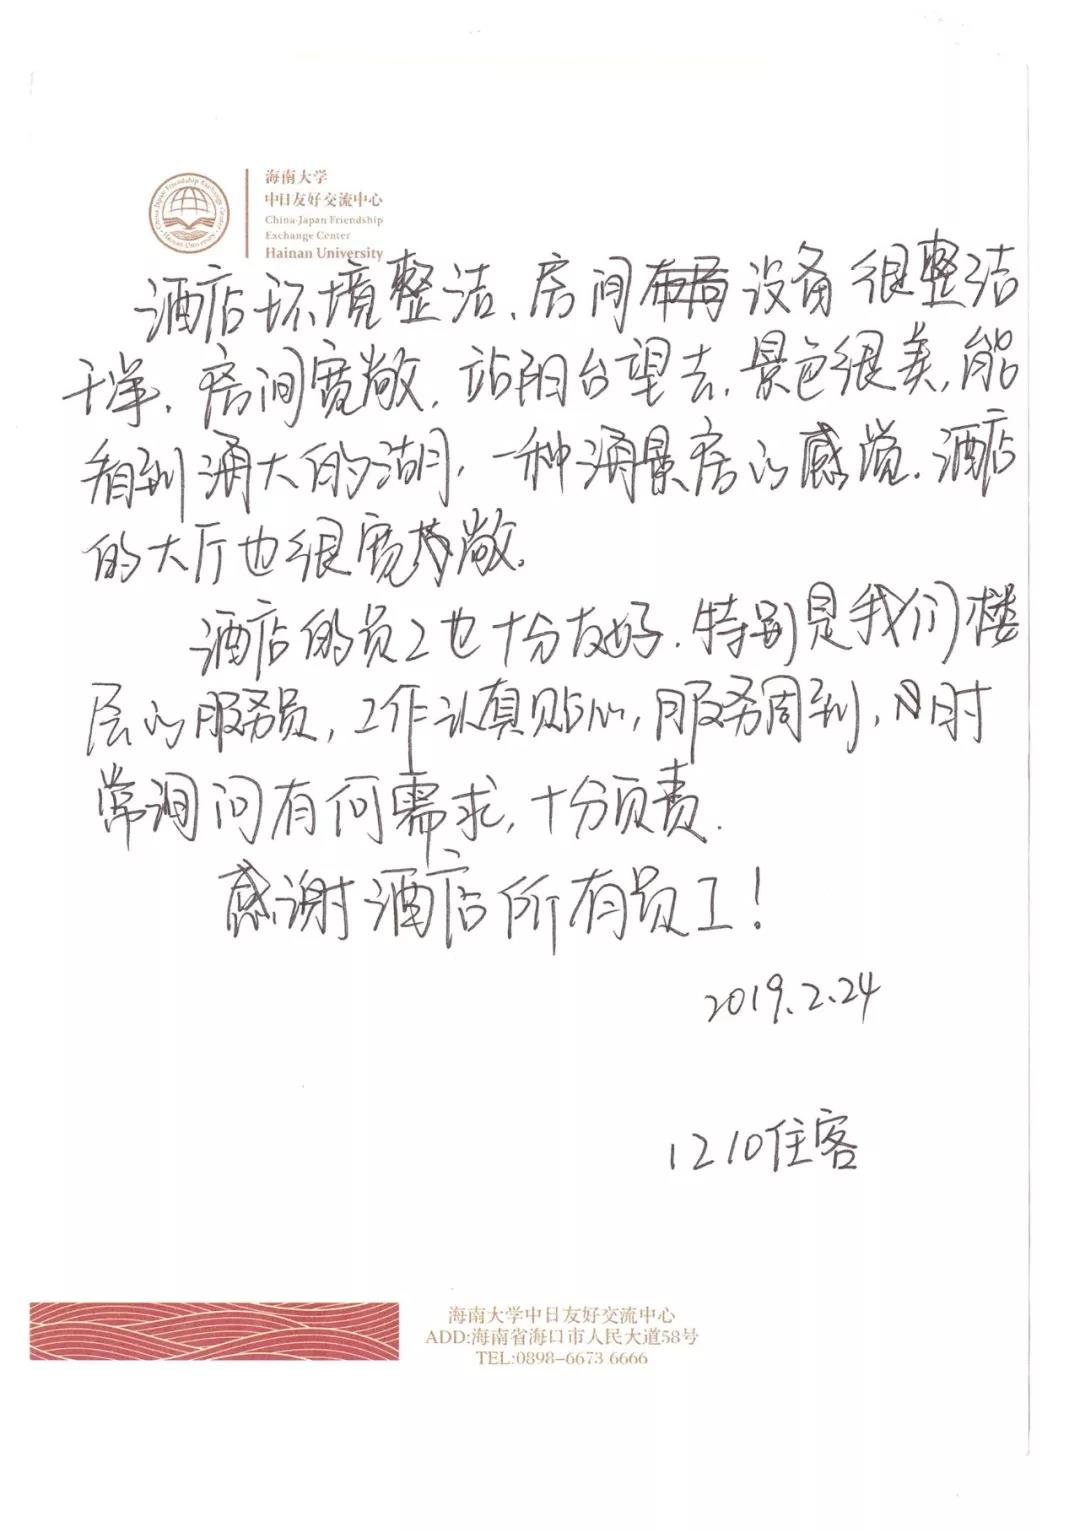 海南大学
中日友好交流中心
China-Japan Friendship
Exchange Center
Hainan University
China-Japan Friendship Exchange Center · Hainan University
酒店环境整洁、房间设备很整洁
干净，房间宽敞，站阳台望去，景色很美，能
看到海大的湖，一种海景房的感觉．酒店
的大厅也很宽敞．
酒店的员工也十分友好．特别是我们楼
层的服务员，工作认真贴心，服务周到，时
常询问有何需求，十分负责．
感谢酒店所有员工！
2019.2.24
1210住客
海南大学中日友好交流中心
ADD:海南省海口市人民大道58号
TEL:0898-6673 6666